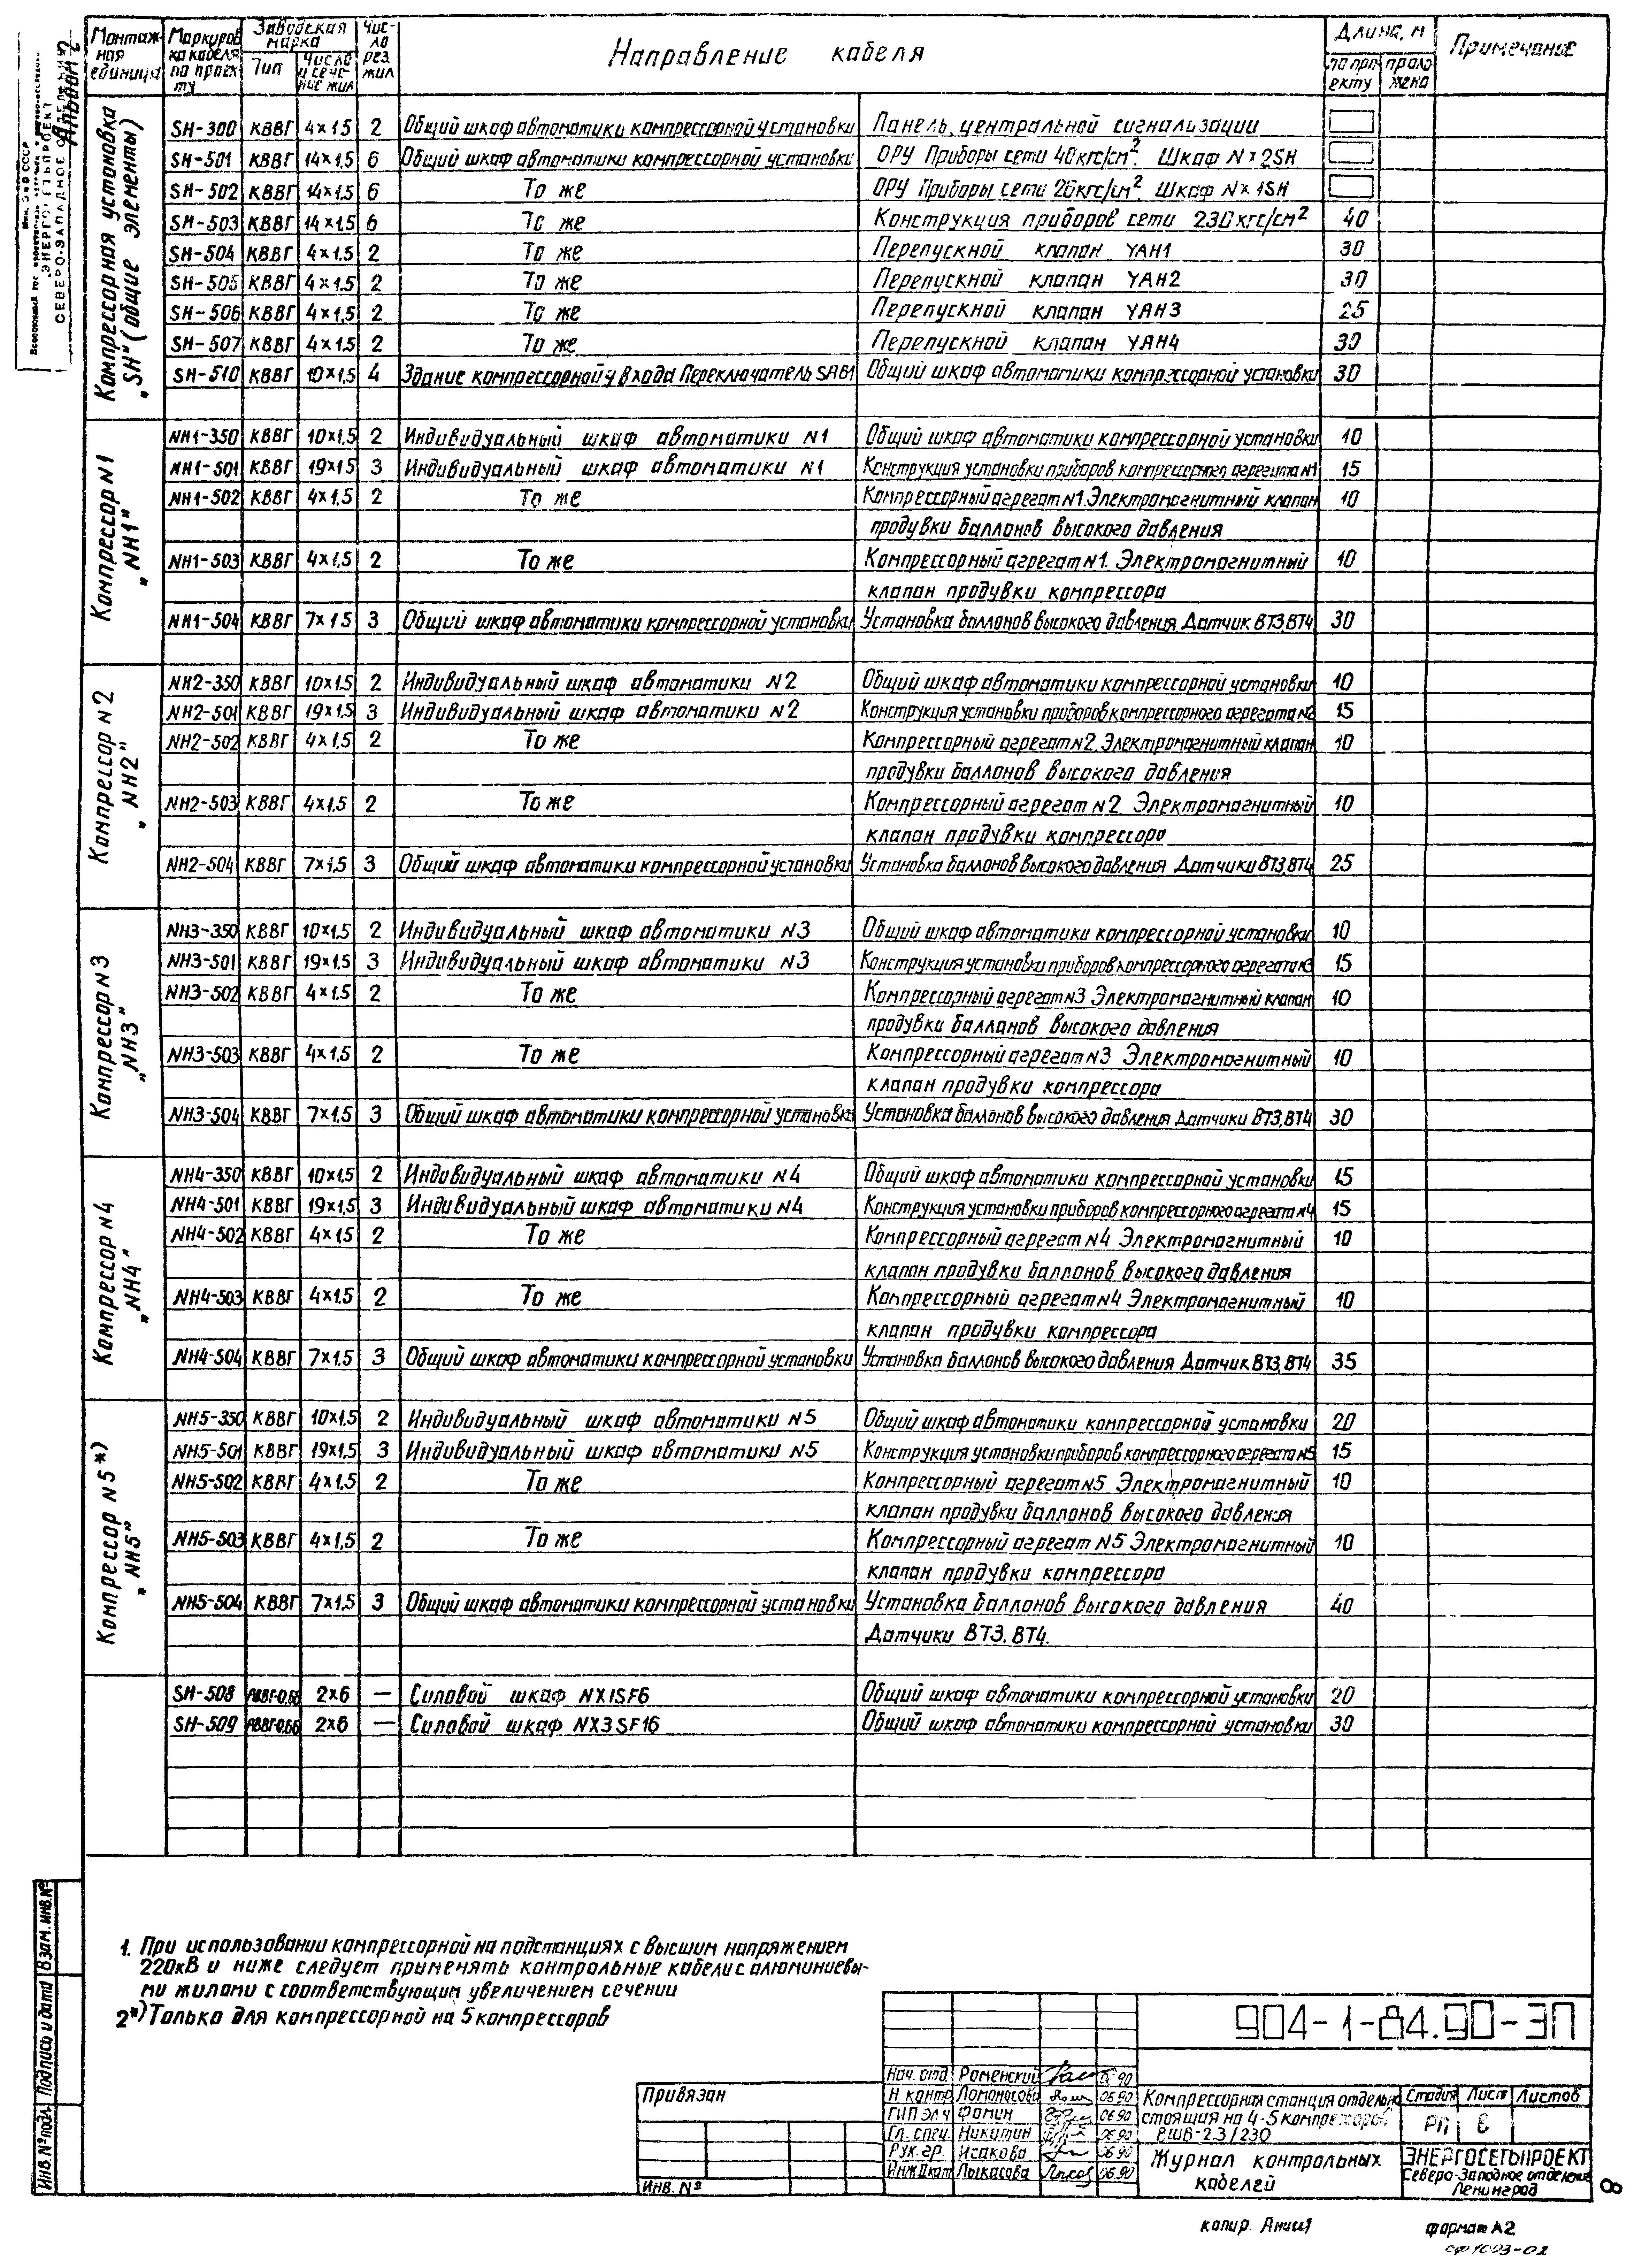 Альбом 2
Монтажная единица | Маркировка кабеля по проекту | Заводская марка | Тип | Число и сечение жил | Число рез. жил | Направление кабеля | Длина, м | по проекту | проложена | Примечание
Компрессорная установка „SH" (общие элементы)
SH-300 КВВГ 4×1.5 2 Общий шкаф автоматики компрессорной установки Панель центральной сигнализации
SH-501 КВВГ 14×1,5 6 Общий шкаф автоматики компрессорной установки ОРУ Приборы сети 40кгс/см². Шкаф NX2SH
SH-502 КВВГ 14×1,5 6 То же ОРУ Приборы сети 20кгс/см². Шкаф NX1SH
SH-503 КВВГ 14×1,5 6 То же Конструкция приборов сети 230кгс/см² 40
SH-504 КВВГ 4×1,5 2 То же Перепускной клапан YAH1 30
SH-505 КВВГ 4×1,5 2 То же Перепускной клапан YAH2 30
SH-506 КВВГ 4×1,5 2 То же Перепускной клапан YAH3 25
SH-507 КВВГ 4×1,5 2 То же Перепускной клапан YAH4 30
SH-510 КВВГ 10×1,5 4 Здание компрессорной у входа Переключатель SAB1 Общий шкаф автоматики компрессорной установки 30
Компрессор N1 „NH1"
NH1-350 КВВГ 10×1,5 2 Индивидуальный шкаф автоматики N1 Общий шкаф автоматики компрессорной установки 10
NH1-501 КВВГ 19×1,5 3 Индивидуальный шкаф автоматики N1 Конструкция установки приборов компрессорного агрегата N1 15
NH1-502 КВВГ 4×1,5 2 То же Компрессорный агрегат N1. Электромагнитный клапан 10
продувки баллонов высокого давления
NH1-503 КВВГ 4×1,5 2 То же Компрессорный агрегат N1. Электромагнитный 10
клапан продувки компрессора
NH1-504 КВВГ 7×1.5 3 Общий шкаф автоматики компрессорной установки Установка баллонов высокого давления. Датчик ВТ3,ВТ4 30
Компрессор N2 „NH2"
NH2-350 КВВГ 10×1,5 2 Индивидуальный шкаф автоматики N2 Общий шкаф автоматики компрессорной установки 10
NH2-501 КВВГ 19×1,5 3 Индивидуальный шкаф автоматики N2 Конструкция установки приборов компрессорного агрегата N2 15
NH2-502 КВВГ 4×1,5 2 То же Компрессорный агрегат N2. Электромагнитный клапан 10
продувки баллонов высокого давления
NH2-503 КВВГ 4×1,5 2 То же Компрессорный агрегат N2. Электромагнитный 10
клапан продувки компрессора
NH2-504 КВВГ 7×1,5 3 Общий шкаф автоматики компрессорной установки Установка баллонов высокого давления Датчики ВТ3,ВТ4 25
Компрессор N3 „NH3"
NH3-350 КВВГ 10×1,5 2 Индивидуальный шкаф автоматики N3 Общий шкаф автоматики компрессорной установки 10
NH3-501 КВВГ 19×1,5 3 Индивидуальный шкаф автоматики N3 Конструкция установки приборов компрессорного агрегата N3 15
NH3-502 КВВГ 4×1,5 2 То же Компрессорный агрегат N3 Электромагнитный клапан 10
продувки баллонов высокого давления
NH3-503 КВВГ 4×1,5 2 То же Компрессорный агрегат N3 Электромагнитный 10
клапан продувки компрессора
NH3-504 КВВГ 7×1,5 3 Общий шкаф автоматики компрессорной установки Установка баллонов высокого давления Датчики ВТ3,ВТ4 30
Компрессор N4 „NH4"
NH4-350 КВВГ 10×1,5 2 Индивидуальный шкаф автоматики N4 Общий шкаф автоматики компрессорной установки 15
NH4-501 КВВГ 19×1,5 3 Индивидуальный шкаф автоматики N4 Конструкция установки приборов компрессорного агрегата N4 15
NH4-502 КВВГ 4×1,5 2 То же Компрессорный агрегат N4 Электромагнитный 10
клапан продувки баллонов высокого давления
NH4-503 КВВГ 4×1,5 2 То же Компрессорный агрегат N4 Электромагнитный 10
клапан продувки компрессора
NH4-504 КВВГ 7×1.5 3 Общий шкаф автоматики компрессорной установки Установка баллонов высокого давления Датчик ВТ3, ВТ4 35
Компрессор N5*) „NH5"
NH5-350 КВВГ 10×1,5 2 Индивидуальный шкаф автоматики N5 Общий шкаф автоматики компрессорной установки 20
NH5-501 КВВГ 19×1,5 3 Индивидуальный шкаф автоматики N5 Конструкция установки приборов компрессорного агрегата N5 15
NH5-502 КВВГ 4×1,5 2 То же Компрессорный агрегат N5 Электромагнитный 10
клапан продувки баллонов высокого давления
NH5-503 КВВГ 4×1,5 2 То же Компрессорный агрегат N5 Электромагнитный 10
клапан продувки компрессора
NH5-504 КВВГ 7×1,5 3 Общий шкаф автоматики компрессорной установки Установка баллонов высокого давления 40
Датчики ВТ3, ВТ4.
SH-508 АВВГ-0,66 2×6 — Силовой шкаф NX1SF6 Общий шкаф автоматики компрессорной установки 20
SH-509 АВВГ-0.66 2×6 — Силовой шкаф NX3SF16 Общий шкаф автоматики компрессорной установки 30
1. При использовании компрессорной на подстанциях с высшим напряжением
220кВ и ниже следует применять контрольные кабели с алюминиевы-
ми жилами с соответствующим увеличением сечения
2*) Только для компрессорной на 5 компрессоров
904-1-84.90-ЭП
Нач. отд. Роменский 06.90
Н. контр Ломоносова 06.90
ГИП эл.ч Фомин 06.90
Гл. спец. Никитин 06.90
Рук. гр. Исакова 06.90
Инж.IIкат Лыкасова 06.90
Компрессорная станция отдельно
стоящая на 4-5 компрессоров
ВШВ-2.3/230
Стадия Лист Листов
РП 8
Журнал контрольных
кабелей
ЭНЕРГОСЕТЬПРОЕКТ
Северо-Западное отделение
Ленинград
Привязан
Инв. №
Инв. № подл. Подпись и дата Взам. инв. №
8
копир.
формат А2